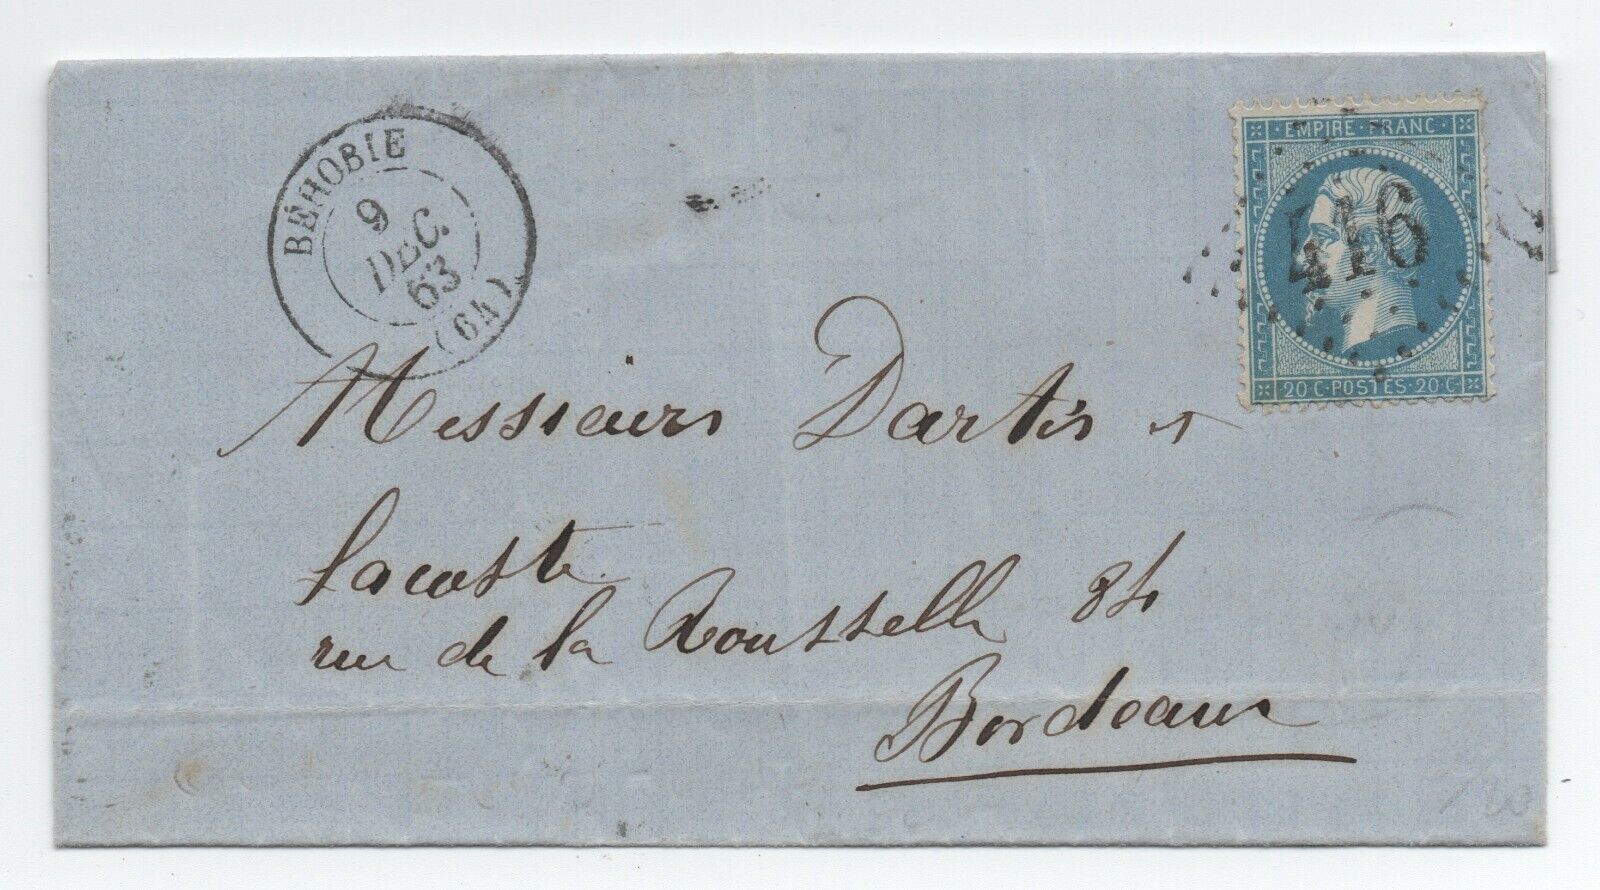 BÉHOBIE
9
DEC.
63
(64)
EMPIRE · FRANC ·
416
20 C · POSTES · 20 C ·
Messieurs Dartis &
Lacoste
rue de la Rousselle 84
Bordeaux